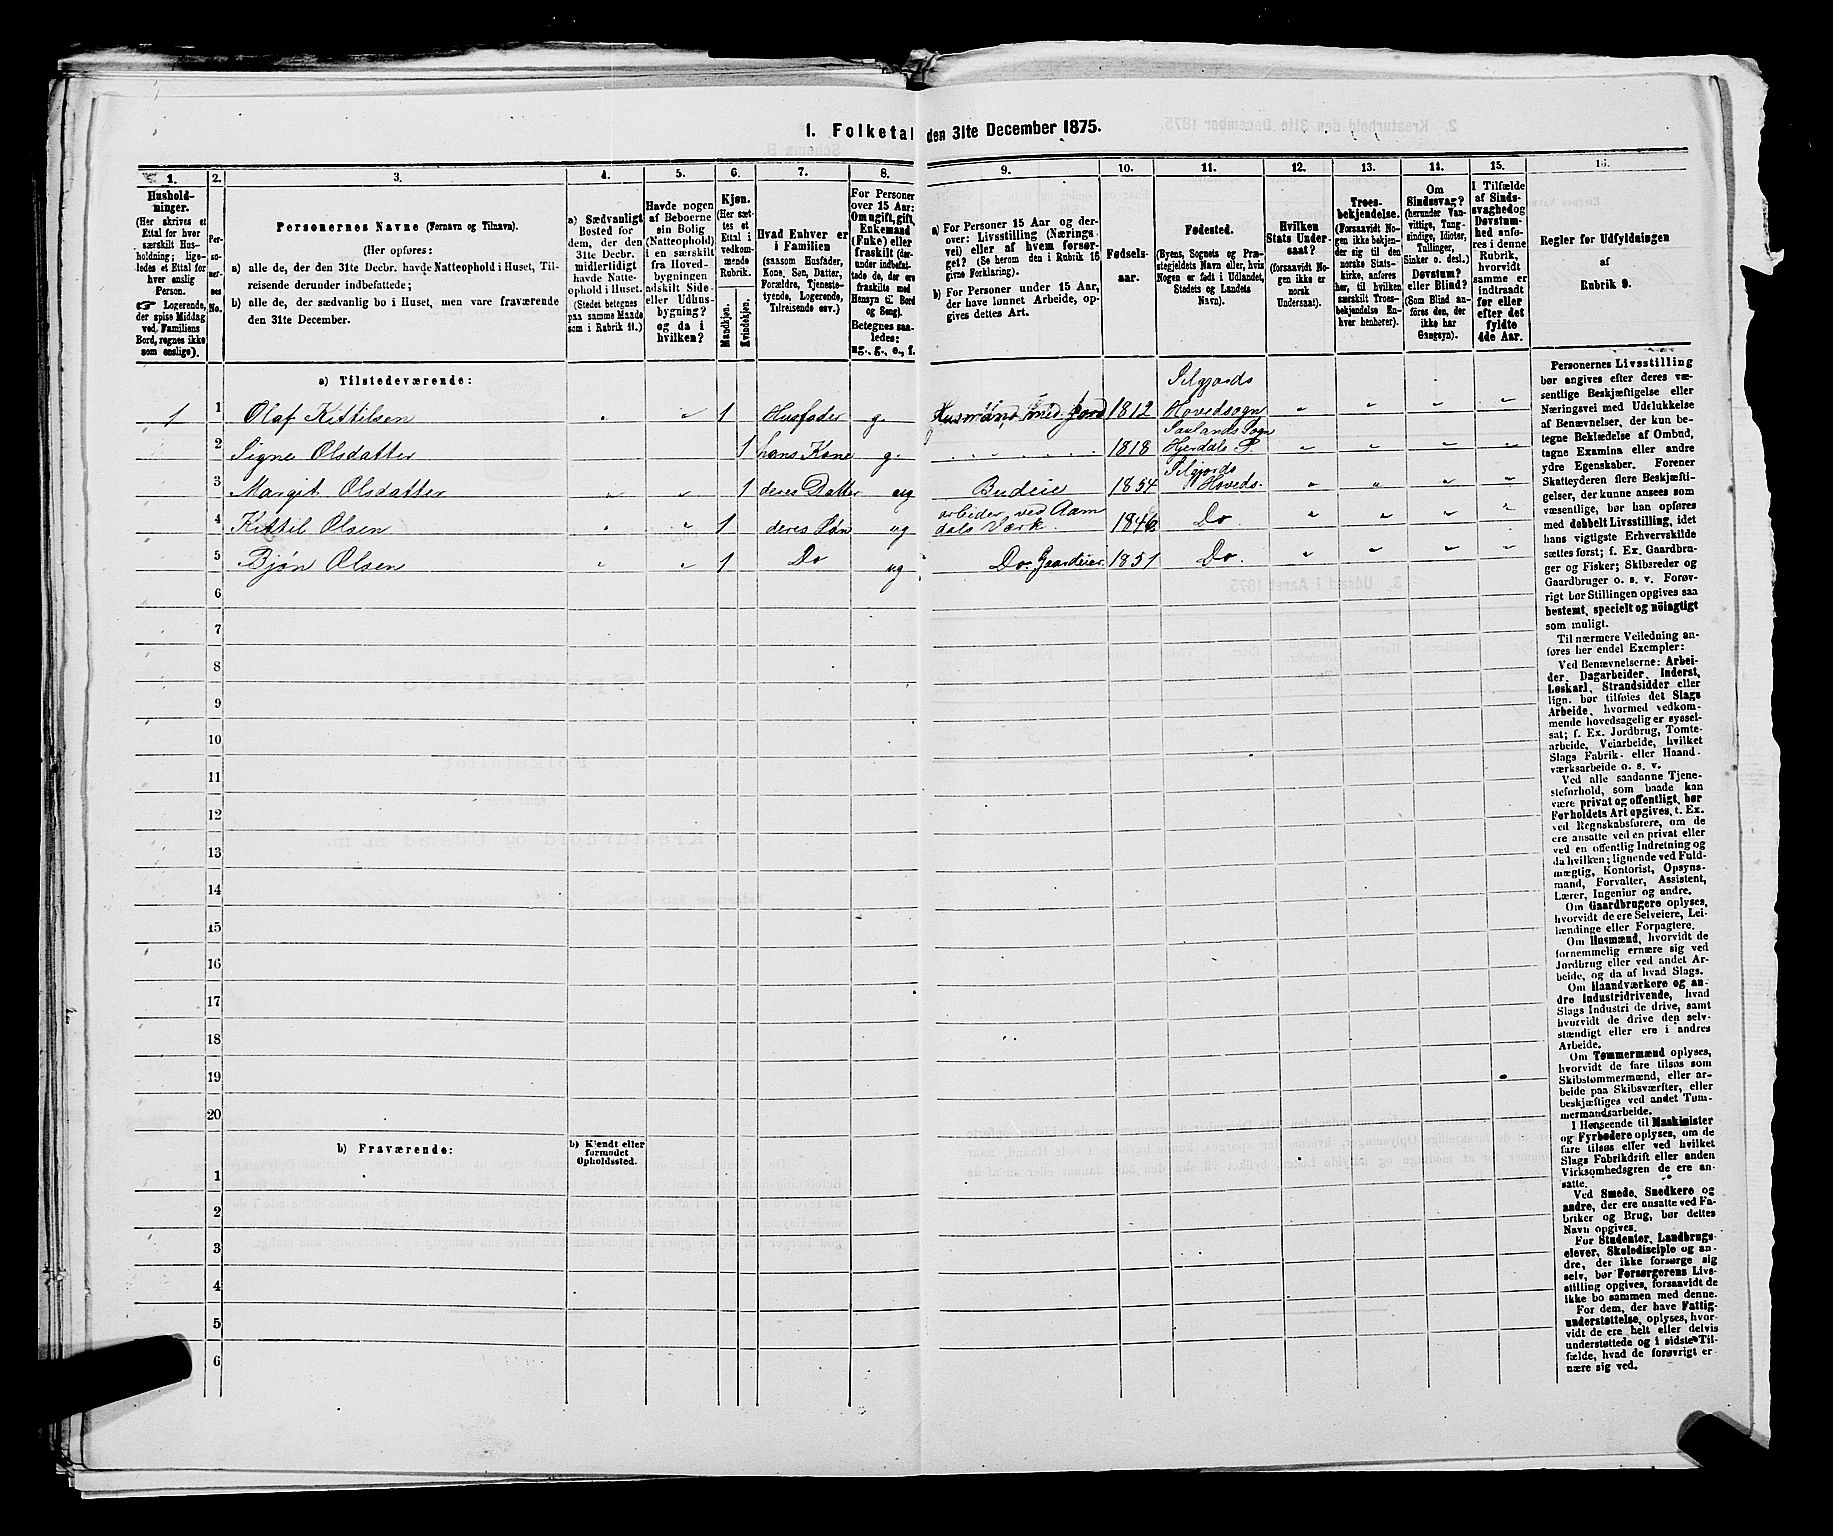 1. Folketal den 31te December 1875.
1. 2. 3. 4. 5. 6. 7. 8. 9. 10. 11. 12. 13. 14. 15. 16.
Hushold-
ninger.
(Her skrives et
Ettal for hver
særskilt Hus-
holdning; lige-
ledes et Ettal for
hver enslig
Person.
☞ Logerende,
der spise Middag
ved Familiens
Bord, regnes ikke
som enslige).
Per-
soner-
nes
No.
Personernes Navne (Fornavn og Tilnavn).
(Her opføres:
a) alle de, der den 31te Decbr. havde Natteophold i Huset, Til-
reisende derunder indbefattede;
b) alle de, der sædvanlig bo i Huset, men vare fraværende
den 31te December.
a) Sædvanligt
Bosted for
dem, der den
31te Decbr.
midlertidigt
havde Natte-
ophold i Huset.
(Stedet betegnes
paa samme Maade
som i Rubrik 11.)
Havde nogen
af Beboerne
sin Bolig
(Natteophold)
i en særskilt
fra Hoved-
bygningen
adskilt Side-
eller Udhus-
bygning?
og da i
hvilken?
Kjøn.
(Her sæt-
tes et
Ettal i
vedkom-
mende
Rubrik.
Mandkjøn.
Kvindekjøn.
Hvad Enhver er
i Familien
(saasom Husfader,
Kone, Søn, Datter,
Forældre, Tjeneste-
tyende, Logerende,
Tilreisende osv.)
For Personer
over 15 Aar:
Om ugift, gift,
Enkemand
(Enke) eller
fraskilt (der-
under indbefat-
tede de, der ere
fraskilte med
Hensyn til Bord
og Seng).
Betegnes saa-
ledes:
ug., g., e., f.
a) For Personer 15 Aar og der-
over: Livsstilling (Nærings-
vei) eller af hvem forsør-
get? (Se herom den i Rubrik 16
givne Forklaring).
b) For Personer under 15 Aar,
der have lønnet Arbeide, op-
gives dettes Art.
Fødsels-
aar.
Fødested.
(Byens, Sognets og Præ-
stegjeldets Navn eller, hvis
Nogen er født i Udlandet,
Stedets og Landets
Navn).
Hvilken
Stats Under-
saat?
(forsaavidt No-
gen ikke er
norsk
Undersaat).
Troes-
bekjendelse.
(Forsaavidt No-
gen ikke bekjen-
der sig til den
norske Stats-
kirke, anføres
her, til hvilken
særskilt Troes-
bekjendelse En-
hver henhører).
Om
Sindssvag?
(herunder Van-
vittige, Tung-
sindige, Idioter,
Tullinger,
Sinker o. desl.)
Døvstum?
eller Blind?
(Som Blind an-
føres den, der
ikke har
Gangsyn).
I Tilfælde
af Sinds-
svaghed og
Døvstum-
hed anfø-
res i denne
Rubrik,
hvorvidt
samme er
indtraadt
før eller
efter det
fyldte
4de Aar.
Regler for Udfyldningen
af
Rubrik 9.
a) Tilstedeværende:
1 1 Olaf Kittilsen " " 1 Husfader g. Husmand med Jord 1812 Silgjords Hovedsogn " " " "
2 Signe Olsdatter 1 hans Kone g. " " " " 1818 Saulands Sogn Hjerdals P. " " " "
3 Margit Olsdatter " " 1 deres Datter ug Budeie 1854 Silgjords Hoveds. " " " "
4 Kittil Olsen " " 1 deres Søn ug arbeider ved Aamdals Værk. 1846 Do " " " "
5 Bjøn Olsen " " 1 Do ug Do. Gaardeier. 1851 Do. " " " "
6
7
8
9
10
11
12
13
14
15
16
17
18
19
20
b) Fraværende:
b) Kjendt eller
formodet
Opholdssted.
1
2
3
4
5
6
Personernes Livsstilling
bør angives efter deres væ-
sentlige Beskjæftigelse eller
Næringsvei med Udelukkelse
af Benævnelser, der kun be-
tegne Beklædelse af Ombud,
tagne Examina eller andre
ydre Egenskaber. Forener
Skatteyderen flere Beskjæfti-
gelser, der kunne ansees som
væsentlige, bør han opføres
med dobbelt Livsstilling, idet
hans vigtigste Erhvervskilde
sættes først; f. Ex. Gaardbru-
ger og Fisker; Skibsreder og
Gaardbruger o. s. v. Forøv-
rigt bør Stillingen opgives saa
bestemt, specielt og nöiagtigt
som muligt.
Til nærmere Veiledning an-
føres her endel Exempler:
Ved Benævnelserne: Arbei-
der, Dagarbeider, Inderst,
Løskarl, Strandsidder eller
lign. bør tilføies det Slags
Arbeide, hvormed vedkom-
mende hovedsagelig er syssel-
sat; f. Ex. Jordbrug, Tomte-
arbeide, Veiarbeide, hvilket
Slags Fabrik- eller Haand-
værksarbeide o. s. v.
Ved alle saadanne Tjene-
steforhold, som baade kan
være privat og offentligt, bør
Forholdets Art opgives, t. Ex.
ved Regnskabsførere, om de
ere ansatte ved en privat eller
ved en offentlig Indretning og
da hvilken; lignende ved Fuld-
mægtig, Kontorist, Opsyns-
mand, Forvalter, Assistent,
Lærer, Ingeniør og andre.
Om Gaardbrugere oplyses,
hvorvidt de ere Selveiere, Lei-
lændinge eller Forpagtere.
Om Husmænd, hvorvidt de
fornemmelig ernære sig ved
Jordbrug eller ved andet Ar-
beide, og da af hvad Slags.
Om Haandværkere og an-
dre Industridrivende, hvad
Slags Industri de drive, samt
hvorvidt de drive den selv-
stændigt eller ere i andres
Arbeide.
Om Tømmermænd oplyses,
hvorvidt de fare tilsøs som
Skibstømmermænd, eller ar-
beide paa Skibsværfter, eller
beskjæftiges ved andet Tøm-
mermandsarbeide.
I Henseende til Maskinister
og Fyrbødere oplyses, om de
fare tilsøs eller ved hvilket
Slags Fabrikdrift eller anden
Virksomhedsgren de ere an-
satte.
Ved Smede, Snedkere og
andre, der ere ansatte ved Fa-
briker og Brug, bør dettes
Navn opgives.
For Studenter, Landbrugs-
elever, Skoledisciple og an-
dre, der ikke forsørge sig
selv, bør Forsørgerens Livs-
stilling opgives, forsaavidt de
ikke bo sammen med denne.
For dem, der have Fattig-
understøttelse, oplyses, hvor-
vidt de ere helt eller delvis
understøttede og i sidste Til-
fælde, hvad de forøvrigt er-
nære sig ved.